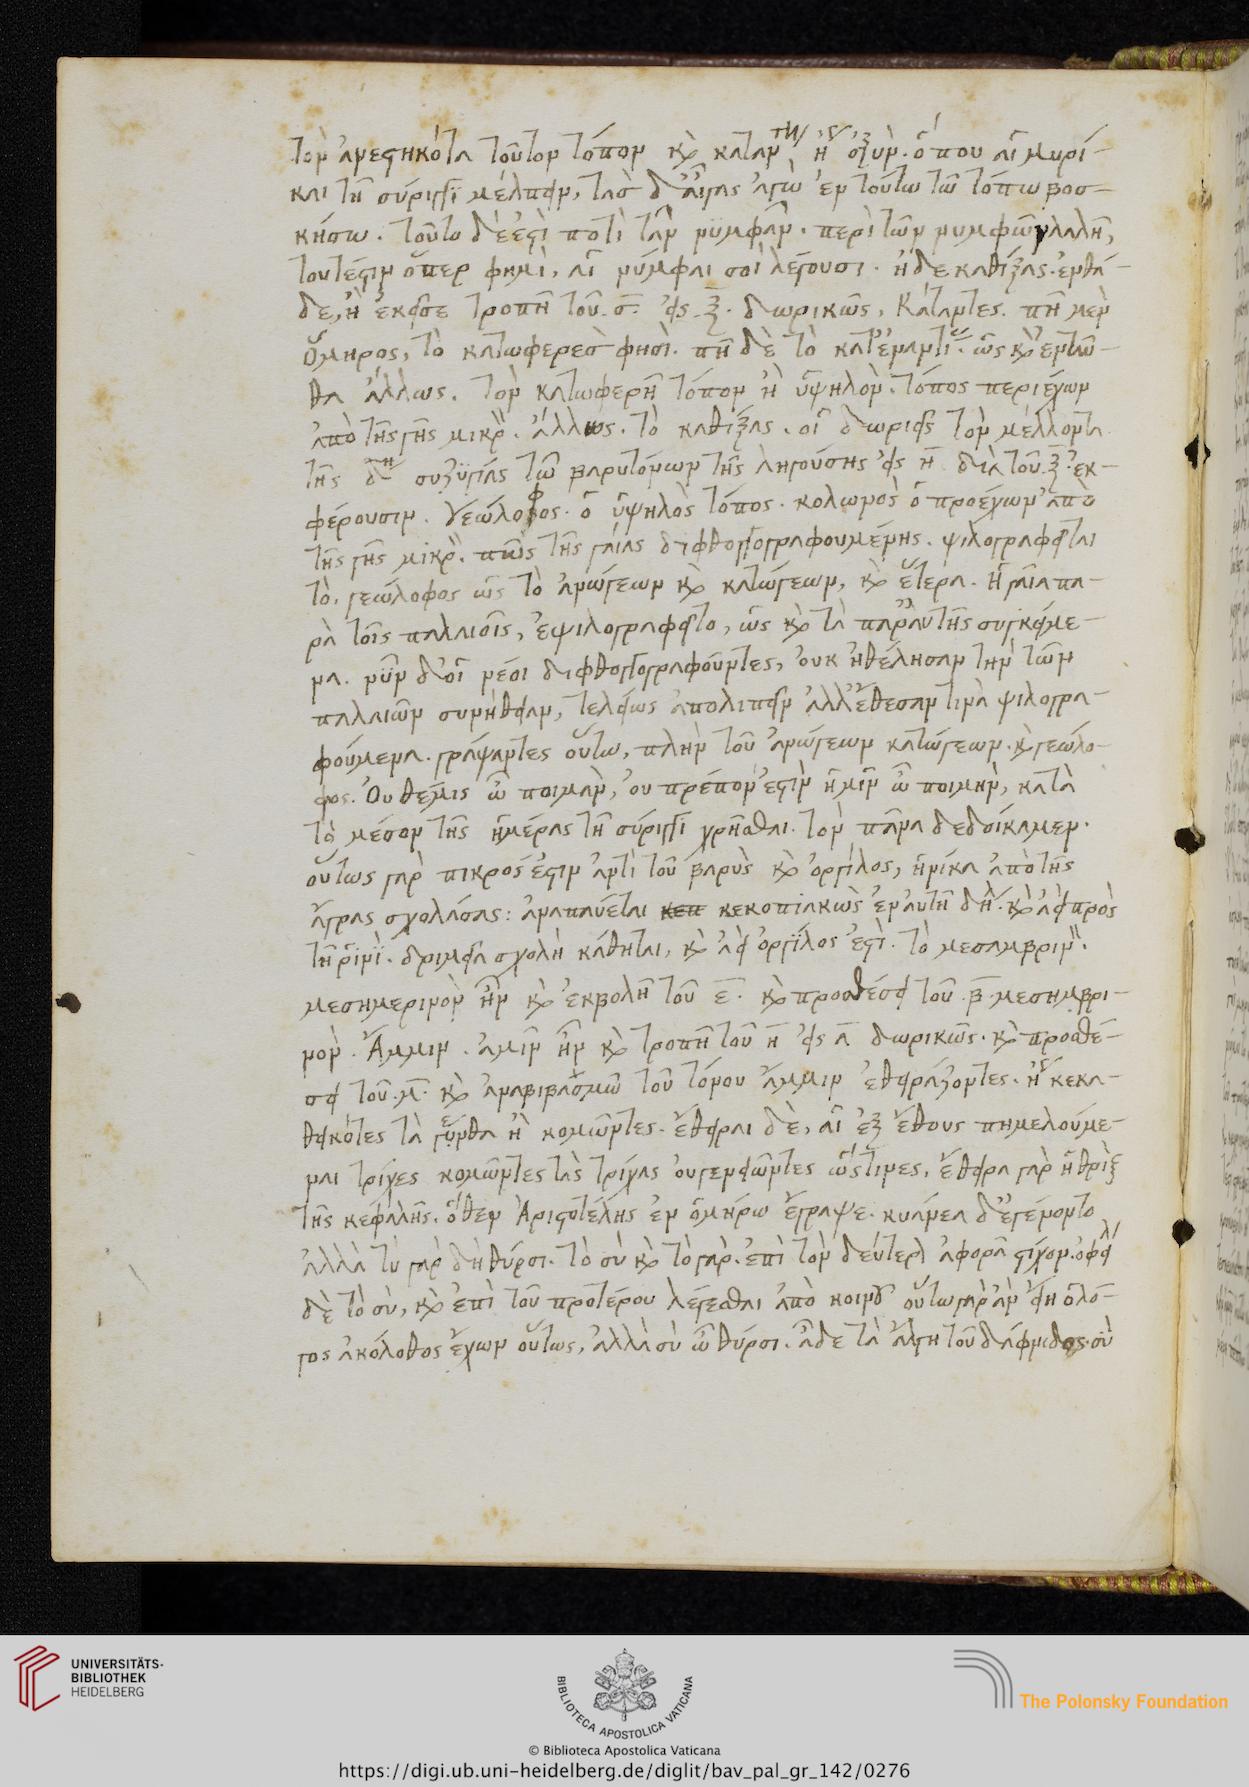 τὸν ἀνεστηκότα τοῦτον τόπον κ̀ κατάντη, ἢ ὀξύν. ὅπου αἱ μυρί-
και τῆ σύριγγϊ μέλπειν, τὰσ δ' αἶγας ἐγὼ ἐν τούτω τῶ τόπω βοσ-
κήσω. τοῦτο δὲ ἐστὶ ποτὶ τᾶν νϋμφᾶν. περὶ τῶν νυμφῶν λαλῆ,
τουτέστιν ὅπερ φημὶ, αἱ νύμφαι σοὶ λέγουσι. ἠδε καθίξας. ἐνθά-
δε, ἢ ἐκεῖσε τροπῆ τοῦ. σ̅. εἰς. ξ̅. δωρικῶς, Κάταντες. πῆ μὲν
ὅμηρος, τὸ κατωφερὲσ φησὶ. πῆ δὲ τὸ κατ' ἐναντίου. ὡς κ̀ ἐνταῦ-
θα ἄλλως. τὸν κατωφερῆ τόπον ἢ ὑψηλὸν. τόπος περιέχων
ἀπὸ τῆς γῆς μικρὸν. ἄλλως. τὸ καθίξας. οἱ δωριεῖς τὸν μέλλοντα
τῆς δ̅ συζϋγίας τῶ βαρυτόνων τῆς ληγούσης εἰς η̅ διὰ τοῦ. ξ̅. ἐκ-
φέρουσιν. γεώλοφος. ὁ ὑψηλὸς τόπος. κολωνὸς ὁ προέχων ἀπὸ
τῆς γῆς μικρὸν. πῶς τῆς γαίας διφθογγογραφουμένης. ψιλογραφεῖται
τὸ. γεώλοφος ὡς τὸ ἀνώγεων κ̀ κατώγεων, κ̀ ἕτερα. ἡ γαῖα πα-
ρὰ τοῖς παλαιοῖς, ἐψιλογραφεῖτο, ὡς κ̀ τὰ παρ' αὐτῆς συγκείμε-
να. νῦν δ' οἱ νέοι διφθογγογραφοῦντες, οὐκ ἠθέλησαν τὴν τῶν
παλαιῶν συνήθειαν, τελείως ἀπολιπεῖν ἀλλ' ἔθεσαν τινὰ ψιλογρα-
φούμενα. γράψαντες οὕτω, πλὴν τοῦ ἀνώγεων κατώγεων. κ̀ γεώλο-
φος. Οὐ θέμις ὦ ποιμὰν, οὐ πρέπον ἐστὶν ἡμῖν ὦ ποιμὴν, κατὰ
τὸ μέσον τῆς ἡμέρας τῆ σύριγγι χρῆσθαι. τὸν πᾶνα δεδοίκαμεν.
οὕτως γὰρ πικρός ἐστιν ἀντὶ τοῦ βαρὺς κ̀ ὀργίλος, ἡνίκα ἀπὸ τῆς
ἄγρας σχολάσας: ἀναπαύεται κεπ κεκοπιακὼς ἐν αὐτῆ δὴ. κ̀ ἀεὶ πρὸς
τῆ ῥϊνὶ. δριμεῖα σχολὴ κάθηται, κ̀ ἀεὶ ὀργίλος ἐστὶ. τὸ μεσαμβρινὸν.
μεσημερινὸν ἦν κ̀ ἐκβολῆ τοῦ ε̅. κ̀ προσθέσει τοῦ. β̅. μεσημβρι-
νον. Ἄμμιν. ἁμῖν ἦν κ̀ τροπῆ τοῦ η̅ εἰς α̅ δωρικῶς. κ̀ προσθέ-
σει τοῦ. μ̅. κ̀ ἀναβιβασμῶ τοῦ τόνου ἄμμιν ἐθειράζοντες. ἢ κεκα-
θηκότες τὰ γένυθα ἢ κομῶντες. ἔθειραι δὲ, αἱ ἐξ ἔθους πημελούμε-
ναι τρίχες κομῶντες τὰς τρίχας οὐ γενειῶντες ὥς τινες, ἔθειρα γὰρ ἡ θρὶξ
τῆς κεφαλῆς. ὅθεν Ἀριστοτέλης ἐν ὁμήρω ἔγραψε. κυάνεα δ' ἐγένοντο
ἀλλὰ τὺ γὰρ δὴ θύρσι. τὸ σὺ κ̀ τὸ γὰρ. ἐπὶ τὸν δεύτερον ἀφορᾶ στίχον. ὀφείλει
δὲ τὸ σὺ, κ̀ ἐπὶ τοῦ προτέρου λέγεσθαι ἀπὸ κοινοῦ οὕτω γὰρ ἂν εἴη ὁ λό-
γος ἀκόλοθος ἔχων οὕτως, ἀλλὰ σὺ ὦ θύρσι. ᾆδε τὰ ἄλγη τοῦ δάφνιδος. σὺ
UNIVERSITÄTS-
BIBLIOTHEK
HEIDELBERG
BIBLIOTECA APOSTOLICA VATICANA
The Polonsky Foundation
© Biblioteca Apostolica Vaticana
https://digi.ub.uni-heidelberg.de/diglit/bav_pal_gr_142/0276